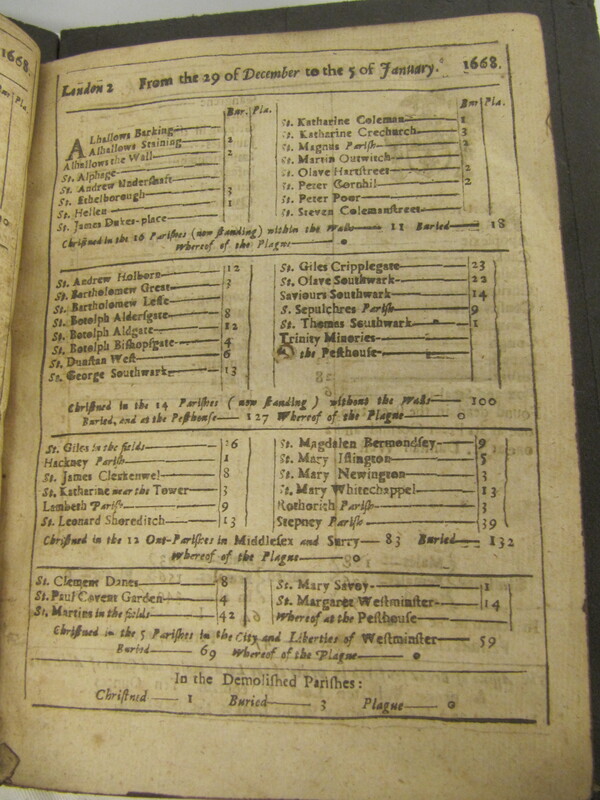 1668.
Bur. Pla.
London 2 From the 29 of December to the 5 of January. 1668.
Bur. Pla.
ALhallows Barking
Alhallows Staining 2
Alhallows the Wall 2
St. Alphage
St. Andrew Underſhaft
St. Ethelborough 3
St. Hellen 1
St. James Dukes-place
Bur. Pla.
St. Katharine Coleman 1
St. Katharine Crechurch 3
St. Magnus Pariſh 2
St. Martin Outwitch
St. Olave Hartſtreet 2
St. Peter Cornhil 2
St. Peter Poor
St. Steven Colemanſtreet
Chriſtned in the 16 Pariſhes (now ſtanding) within the Walls 11 Buried 18
Whereof of the Plague 0
St. Andrew Holborn 12
St. Bartholomew Great 3
St. Bartholomew Leſſe
St. Botolph Alderſgate 8
St. Botolph Aldgate 12
St. Botolph Biſhopſgate 4
St. Dunſtan Weſt 6
St. George Southwark 13
St. Giles Cripplegate 23
St. Olave Southwark 22
Saviours Southwark 14
S. Sepulchres Pariſh 9
St. Thomas Southwark 1
Trinity Minories
the Peſthouſe
Chriſtned in the 14 Pariſhes (now ſtanding) without the Walls 100
Buried, and at the Peſthouſe 127 Whereof of the Plague 0
St. Giles in the fields 26
Hackney Pariſh 1
St. James Clerkenwel 8
St. Katharine near the Tower 3
Lambeth Pariſh 9
St. Leonard Shoreditch 13
St. Magdalen Bermondſey 9
St. Mary Iſlington 5
St. Mary Newington 3
St. Mary Whitechappel 13
Rothorich Pariſh 3
Stepney Pariſh 39
Chriſtned in the 12 Out-Pariſhes in Middleſex and Surry 83 Buried 132
Whereof of the Plague 0
St. Clement Danes 8
St. Paul Covent Garden 4
St. Martins in the fields 42
St. Mary Savoy 1
St. Margaret Weſtminſter 14
Whereof at the Peſthouſe
Chriſtned in the 5 Pariſhes in the City and Liberties of Weſtminſter 59
Buried 69 Whereof of the Plague 0
In the Demoliſhed Pariſhes:
Chriſtned 1 Buried 3 Plague 0